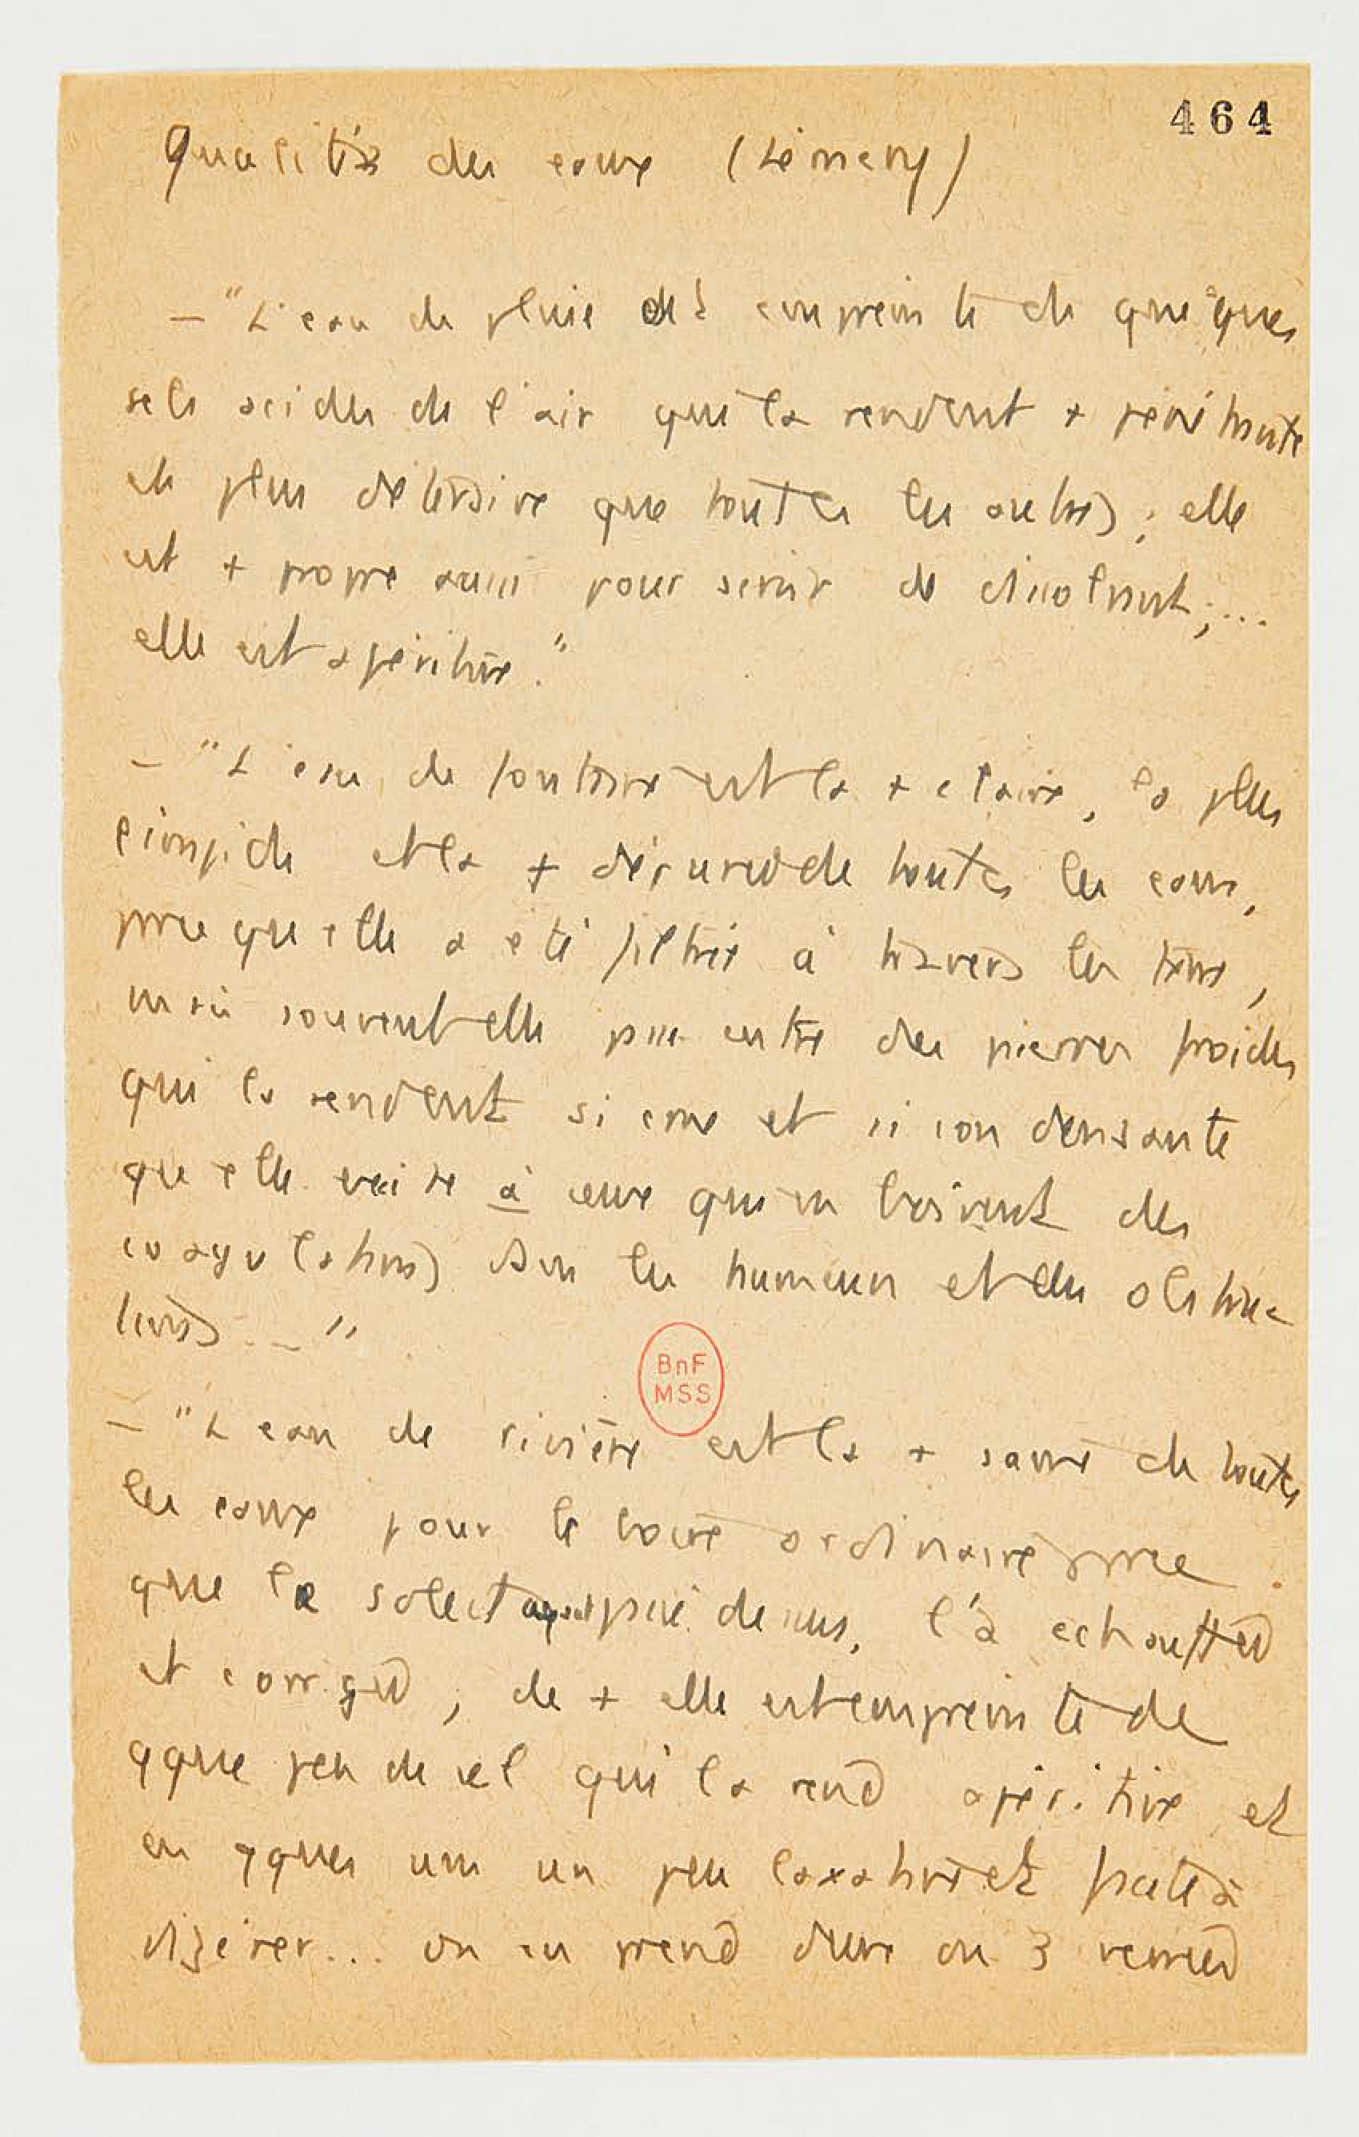 464
Qualités des eaux (Lémery)
— "L'eau de pluie est empreinte de quelques
sels acides de l'air qui la rendent + pénétrante
et plus détersive que toutes les autres ; elle
est + propre aussi pour servir de dissolvant ; ...
elle est apéritive."
— "L'eau de fontaine est la + claire, la plus
limpide et la + dépurée de toutes les eaux,
pce qu'elle a été filtrée à travers les terres,
mais souvent elle passe entre des pierres froides
qui la rendent si crue et si condensante
qu'elle excite à ceux qui en boivent des
coagulations dans les humeurs et des obstruc-
tions ... "
— "L'eau de rivière est la + saine de toutes
les eaux pour le boire ordinaire pce
que le soleil ayant passé dessus, l'a échauffée
et corrigée ; de + elle est empreinte de
qque peu de sel qui la rend apéritive et
en qques uns un peu laxative et facile à
digérer... on en prend deux ou 3 verrées
BnF
MSS